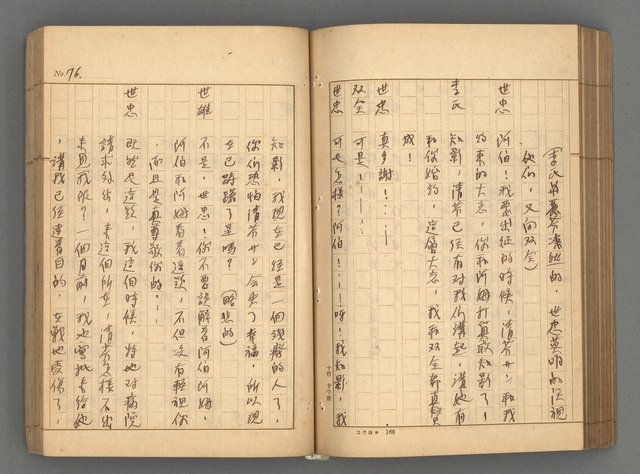 世忠 阿伯!我要出征的時候,清芳サン和我
約束的大志,你和阿姆打算敢知影了!
李氏 知影,清芳已經有對我們講起,講她有
和你婚約,這個大志,我和双全都真賛
成!
世忠 真多謝!…
双全 可是!…
世忠 可是怎樣?阿伯!…!…呀!我知影,我
コクヨヨ 168
No. 76.
知影,我現在已經是一個殘廢的人了,
你們恐怕清芳サン会失了幸福,所以現
在已經躊躇了是嗎?(略悲的)
世雄 不是,世忠!你不要誤解着阿伯阿姆,
阿伯和阿姆看着這款,不但沒有輕視你
,而且是真尊敬你的。…
世忠 既然是這款,我這個時候,特地对病院
請求外出,來這個所在,清芳怎樣不出
來見我呢?一個月前,我也寫批來給她
,講我已經連着目的,在戰地受傷了,